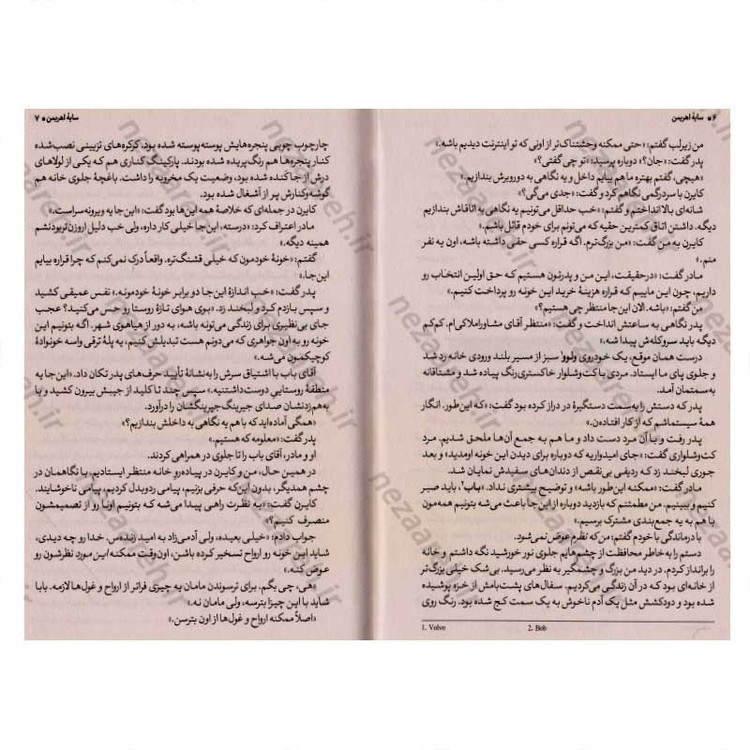 ۶ ● سایهٔ اهریمن
من زیرلب گفتم: «حتی ممکنه وحشتناک‌تر از اونی که تو اینترنت دیدیم باشه.»
پدر گفت: «جان؟» دوباره پرسید: «تو چی گفتی؟»
«هیچی، گفتم بهتره ما هم بیایم داخل و یه نگاهی به دوروبرش بندازیم.»
کایرن با سردرگمی نگاهم کرد و گفت: «جدی می‌گی؟»
شانه‌ای بالا انداختم و گفتم: «خب حداقل می‌تونیم یه نگاهی به اتاقاش بندازیم
دیگه. داشتن اتاق کمترین حقیه که می‌تونم برای خودم قائل باشم.»
کایرن به من گفت: «من بزرگ‌ترم. اگه قراره کسی حقی داشته باشه، اون یه نفر
منم.»
مادر گفت: «درحقیقت، این من و پدرتون هستیم که حق اولین انتخاب رو
داریم، چون این ماییم که قراره هزینهٔ خرید این خونه رو پرداخت کنیم.»
من گفتم: «باشه. الان این‌جا منتظر چی هستیم؟»
پدر نگاهی به ساعتش انداخت و گفت: «منتظر آقای مشاوراملاکی‌ام. کم‌کم
دیگه باید سروکله‌ش پیدا شه.»
درست همان موقع، یک خودروی ولوو¹ سبز از مسیر بلند ورودی خانه رد شد
و جلوی پای ما ایستاد. مردی با کت‌وشلوار خاکستری‌رنگ پیاده شد و مشتاقانه
به‌سمتمان آمد.
پدر که دستش را به‌سمت دستگیرهٔ در دراز کرده بود گفت: «که این‌طور. انگار
همهٔ سیستماشم که از کار افتاده‌ن.»
پدر رفت و با آن مرد دست داد و ما هم به جمع آن‌ها ملحق شدیم. مرد
کت‌وشلواری گفت: «جای امیدواریه که دوباره برای دیدن این خونه اومدید» و بعد
جوری لبخند زد که ردیفی بی‌نقص از دندان‌های سفیدش نمایان شد.
مادر گفت: «ممکنه این‌طور باشه» و توضیح بیشتری نداد. «باب²، باید صبر
کنیم و ببینیم. من مطمئنم که بازدید دوباره از این‌جا باعث می‌شه بتونیم همه‌مون
با هم به یه جمع‌بندی مشترک برسیم.»
با درماندگی با خودم گفتم: من که نظرم عوض نمی‌شود.
دستم را به خاطر محافظت از چشم‌هایم جلوی نور خورشید نگه داشتم و خانه
را برانداز کردم. در دید من بزرگ و چشمگیر به نظر می‌رسید. بی‌شک خیلی بزرگ‌تر
از خانه‌ای بود که در آن زندگی می‌کردیم. سفال‌های پشت‌بامش از خزه پوشیده
شده بود و دودکشش مثل یک آدم ناخوش به یک سمت کج شده بود. رنگ روی
1. Volvo 2. Bob
سایهٔ اهریمن ● ۷
چارچوب چوبی پنجره‌هایش پوسته‌پوسته شده بود. کرکره‌های تزیینی نصب‌شده
کنار پنجره‌ها هم رنگ‌پریده شده بودند. پارکینگ کناری هم که یکی از لولاهای
درش از جا کنده شده بود، وضعیت یک مخروبه را داشت. باغچهٔ جلوی خانه هم
گوشه‌وکنارش پر از آشغال شده بود.
کایرن در جمله‌ای که خلاصهٔ همه این‌ها بود گفت: «این‌جا یه ویرونه‌سراست.»
مادر اعتراف کرد: «درسته، این‌جا خیلی کار داره، ولی خب دلیل ارزون‌تر بودنشم
همینه دیگه.»
گفتم: «خونهٔ خودمون که خیلی قشنگ‌تره. واقعاً درک نمی‌کنم که چرا قراره بیایم
این‌جا.»
پدر گفت: «خب اندازهٔ این‌جا دو برابر خونهٔ خودمونه.» نفس عمیقی کشید
و سپس بازدم کرد و لبخند زد. «بوی هوای تازهٔ روستا رو حس می‌کنید؟ عجب
جای بی‌نظیری برای زندگی می‌تونه باشه، به دور از هیاهوی شهر. اگه بتونیم این
خونه رو به اون جواهری که می‌دونم هست تبدیلش کنیم، یه پلهٔ ترقی واسه خونوادهٔ
کوچیکمون می‌شه.»
آقای باب با اشتیاق سرش را به‌نشانهٔ تأیید حرف‌های پدر تکان داد. «این‌جا یه
منطقهٔ روستایی دوست‌داشتنیه.» سپس چند تا کلید از جیبش بیرون کشید و با
به‌هم‌زدنشان صدای جیرینگ‌جیرینگشان را درآورد.
«همگی آماده‌اید که با هم یه نگاهی به داخلش بندازیم؟»
پدر گفت: «معلومه که هستیم.»
او و مادر، آقای باب را تا جلوی در همراهی کردند.
در همین حال، من و کایرن در پیاده‌رو خانه منتظر ایستادیم. با نگاهمان در
چشم همدیگر، بدون این‌که حرفی بزنیم، پیامی ردوبدل کردیم، پیامی ناخوشایند.
کایرن گفت: «به نظرت راهی پیدا می‌شه که بتونیم اونا رو از تصمیمشون
منصرف کنیم؟»
جواب دادم: «خیلی بعیده، ولی آدمی‌زاد به امید زنده‌س. خدا رو چه دیدی،
شاید این خونه رو ارواح تسخیر کرده باشن، اون‌وقت ممکنه این مورد نظرشون رو
عوض کنه.»
«هی، چی بگم. برای ترسوندن مامان یه چیزی فراتر از ارواح و غول‌ها لازمه. بابا
شاید با این چیزا بترسه، ولی مامان نه.»
«اصلاً ممکنه ارواح و غول‌ها از اون بترسن.»
nezaareh.ir